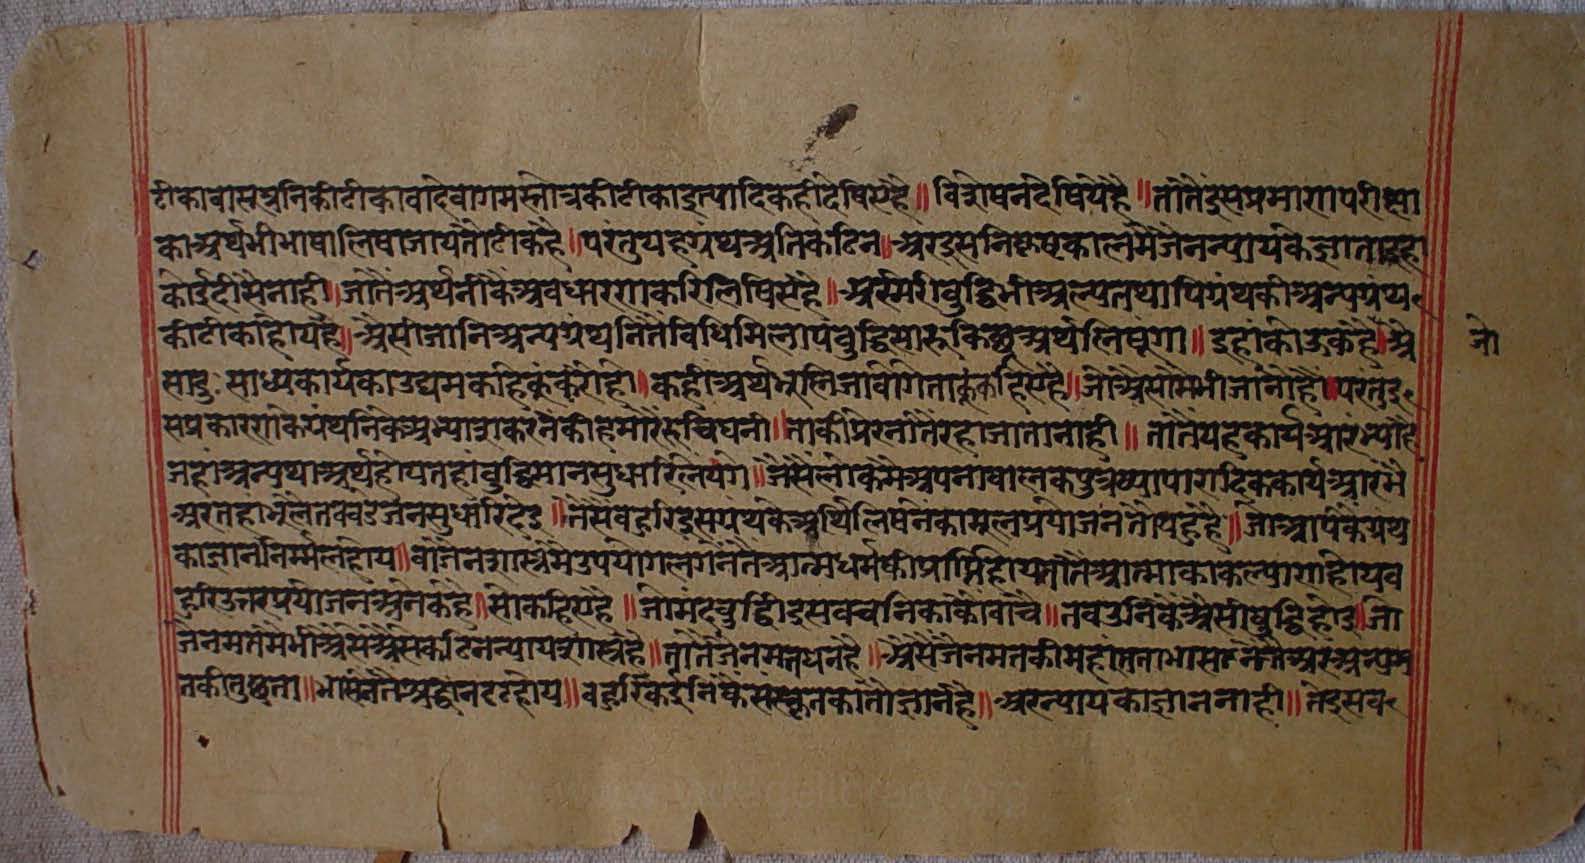 टीकावासत्रनिकीटीकावादेवागमस्तोत्रकीटीकाइत्यादिकहीदेषिएहै॥विशेषनदेषियेहै॥तातैंइसप्रमाणपरीक्षा
काअर्थभीभाषालिषाजायतौठीकहै॥परंतुयहग्रंथअतिकठिन॥अरइसनिकृष्टकालमैजैनन्यायकेज्ञाताइहां
कोईदीसैनाही॥जातैंअर्थनीकैअवधारणाकरिलिषिएहै॥अरमेरीबुद्धिभीअल्पतथापिग्रंथकीअन्यग्रंथ
कीटीकाहोयहै॥अैसीजानिअन्यग्रंथनितैंविधिमिलापबुद्धिसारूकिछुअर्थलिषूंगा॥इहांकोऊकहै॥अै
जो
सादुःसाध्यकार्यकाउद्यमकाहेकूंकरोहो॥कहीअर्थभूलिजावोगेताकूंकहिएहै॥जोअैसोमैभीजानोहौं॥परंतुइ
सप्रकारणकेग्रंथनिकेअभ्याशकरनेकीहमारैरूचिघनी॥ताकीप्रेरनातैंरहाजातानाही॥तातैंयहकार्यआरंभ्योहै
जहांअन्यथाअर्थहोयतहांबुद्धिमानसुधारिलेयंगे॥जैसैंलोकमैअपनाबालकपुत्रव्यापारादिककार्यआरंभै
अरतहांभूलैतबबडेजनसुधारिदेइ॥तैसैंबहुरिइसग्रंथकेअर्थिलिषनेकामूलप्रयोजनतोयहहै॥जोआपकेग्रंथ
काज्ञाननिर्म्मलहोय॥वाजैनशास्त्रमैउपयोगलगनेतैंआत्मधर्मकीप्राप्तिहोयतातैंआत्माकाकल्याणहोयब
हुरिउत्तरप्रयोजनअनेकहै॥सोकहिएहै॥जोमंदबुद्धिइसवचनिकाकोंवांचै॥तबउनिकैअैसीबुद्धिहोइ॥जो
जैनमतमैभीअैसेअैसेकठिनन्यायशास्त्रहै॥तातैंजैनमतधनहै॥अैसैजैनमतकीमहांतताभासनेतैंअरअन्यम
तकीतुछता॥भासनेतैंश्रद्धानदृढहोय॥बहुरिकेईनिकैसंस्कृतकातोज्ञानहै॥अरन्यायकाज्ञाननाही॥तेइसव